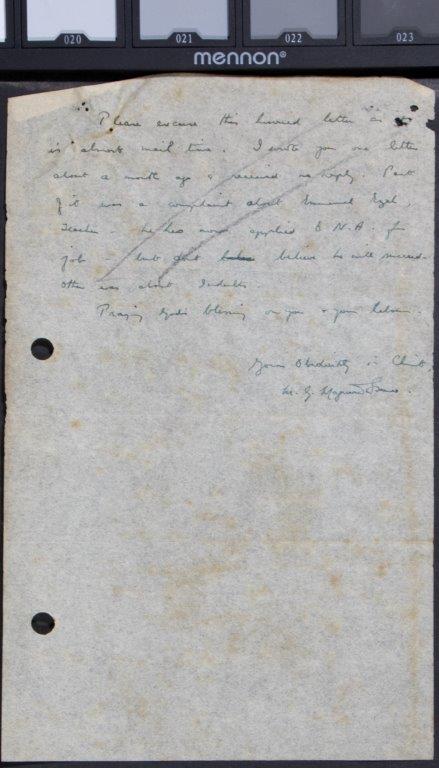 020 021 022 023
mennon®
Please excuse this hurried letter as it
is almost mail time. I wrote you one letter
about a month ago & received no reply. Part
of it was a complaint about Emmanuel
Teacher - he has now applied E.N.A. for
job - but don't believe he will succeed.
Other was about Indults.
Praying God's blessing on you & your labour.
Yours Obediently in Christ,
M. G.